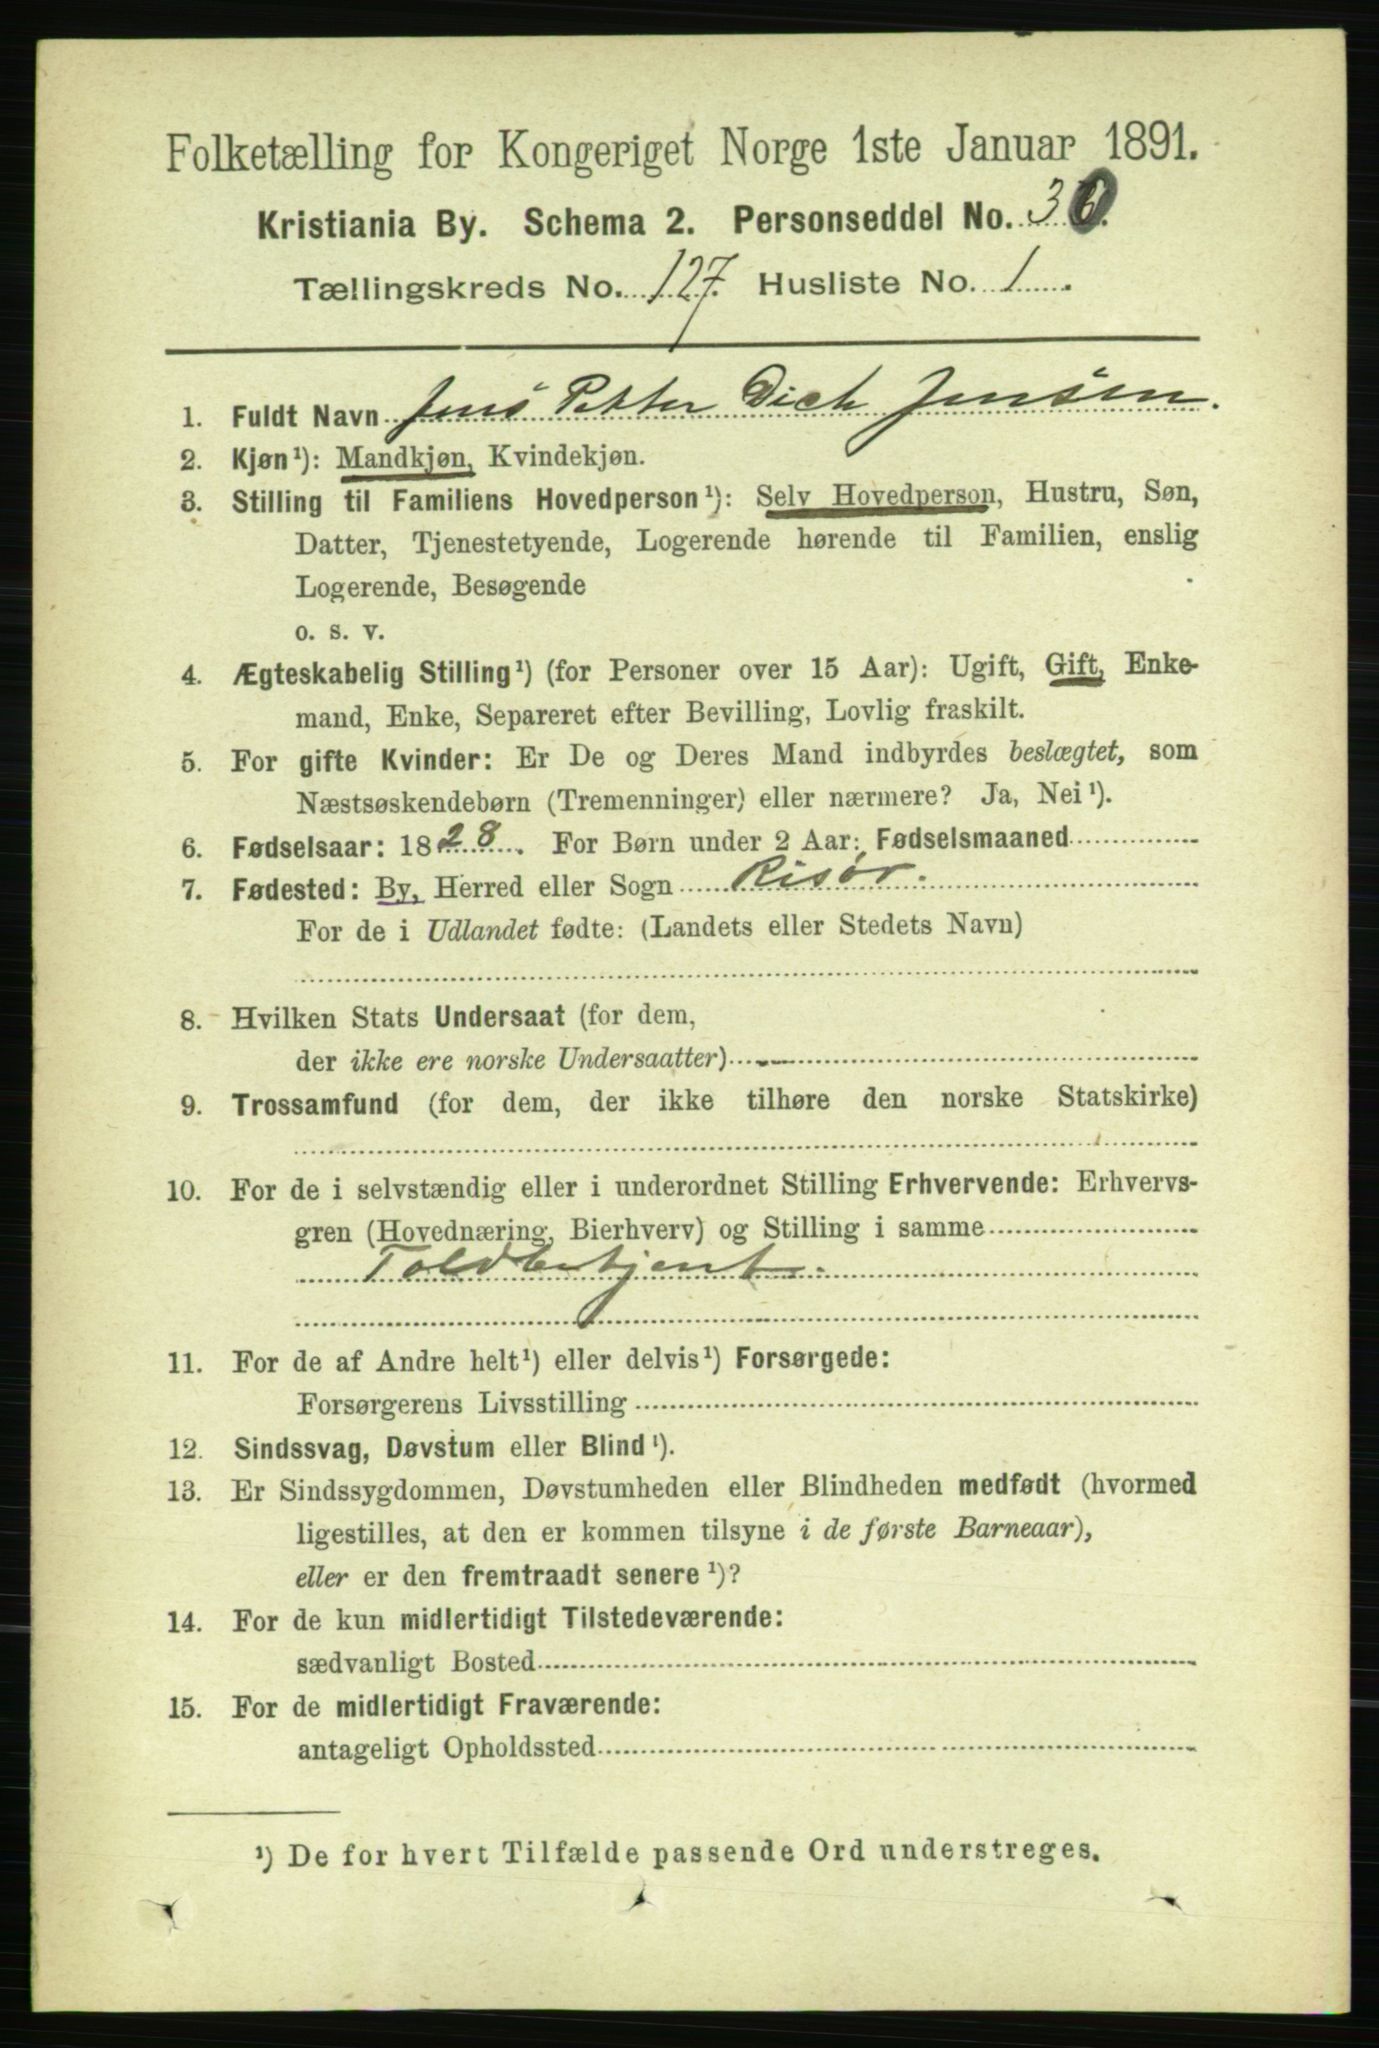 Folketælling for Kongeriget Norge 1ste Januar 1891.
Kristiania By. Schema 2. Personseddel No. 30.
Tællingskreds No. 127. Husliste No. 1
1. Fuldt Navn Jens Petter Dick Jensen.
2. Kjøn¹): Mandkjøn, Kvindekjøn.
3. Stilling til Familiens Hovedperson¹): Selv Hovedperson, Hustru, Søn,
Datter, Tjenestetyende, Logerende hørende til Familien, enslig
Logerende, Besøgende
o. s. v.
4. Ægteskabelig Stilling¹) (for Personer over 15 Aar): Ugift, Gift, Enke-
mand, Enke, Separeret efter Bevilling, Lovlig fraskilt.
5. For gifte Kvinder: Er De og Deres Mand indbyrdes beslægtet, som
Næstsøskendebørn (Tremenninger) eller nærmere? Ja, Nei¹).
6. Fødselsaar: 1828. For Børn under 2 Aar: Fødselsmaaned
7. Fødested: By, Herred eller Sogn Risør.
For de i Udlandet fødte: (Landets eller Stedets Navn)
8. Hvilken Stats Undersaat (for dem,
der ikke ere norske Undersaatter)
9. Trossamfund (for dem, der ikke tilhøre den norske Statskirke)
10. For de i selvstændig eller i underordnet Stilling Erhvervende: Erhvervs-
gren (Hovednæring, Bierhverv) og Stilling i samme
Toldbetjent.
11. For de af Andre helt¹) eller delvis¹) Forsørgede:
Forsørgerens Livsstilling
12. Sindssvag, Døvstum eller Blind¹).
13. Er Sindssygdommen, Døvstumheden eller Blindheden medfødt (hvormed
ligestilles, at den er kommen tilsyne i de første Barneaar),
eller er den fremtraadt senere¹)?
14. For de kun midlertidigt Tilstedeværende:
sædvanligt Bosted
15. For de midlertidigt Fraværende:
antageligt Opholdssted
¹) De for hvert Tilfælde passende Ord understreges.